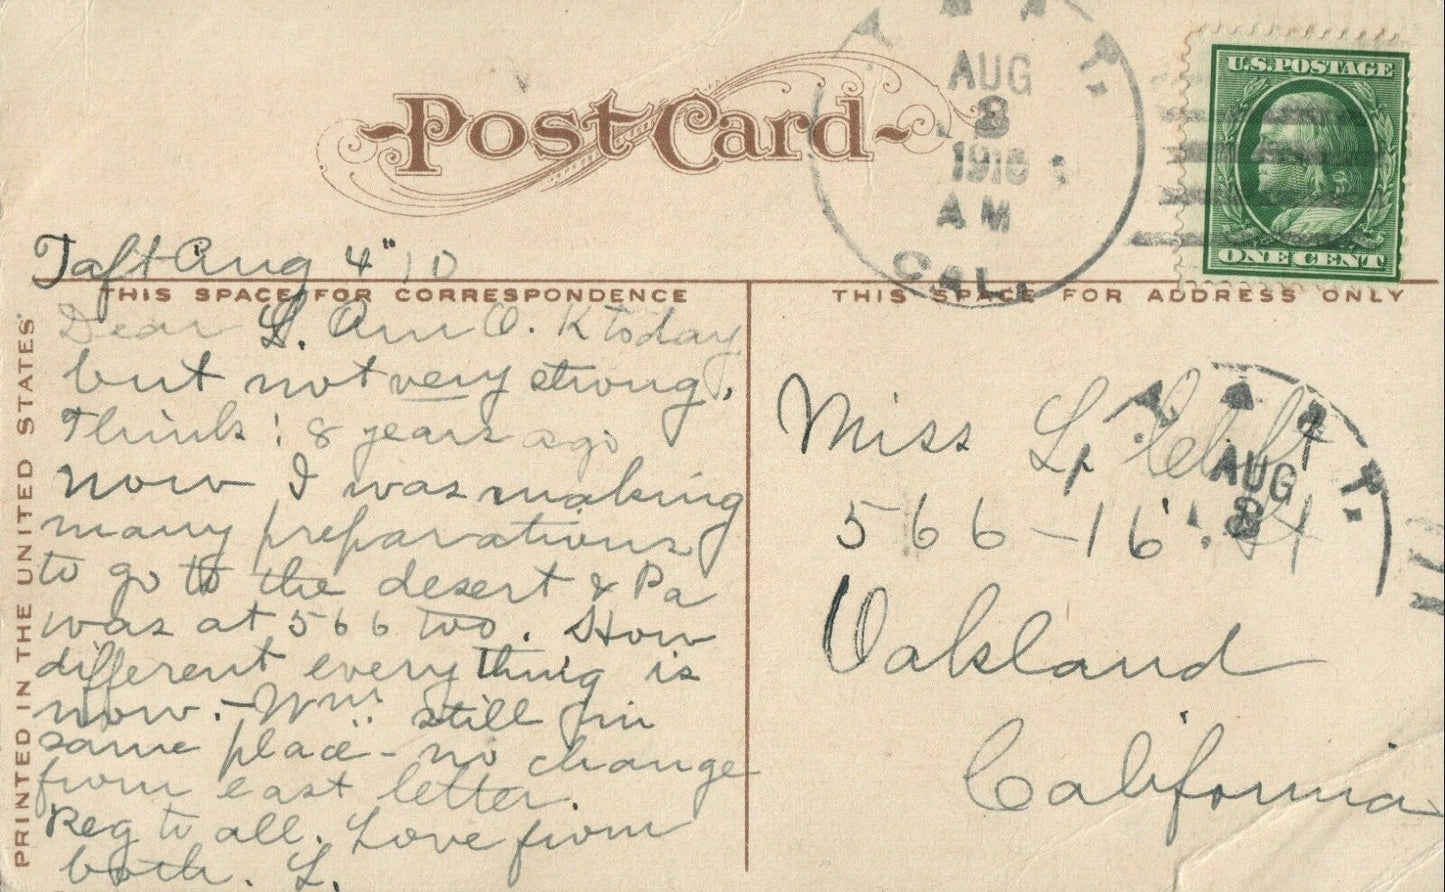 Post Card
U.S. POSTAGE
ONE CENT
TAFT,
AUG
8
1910
AM
CAL.
Taft Aug 4" 10
THIS SPACE FOR CORRESPONDENCE
THIS SPACE FOR ADDRESS ONLY
PRINTED IN THE UNITED STATES
Dear L. Am O.K today
but not very strong.
Think! 8 years ago
now I was making
many preparations
to go to the desert & Pa
was at 566 too. How
different everything is
now. - Wm. still in
same place - no change
from last letter.
Reg to all. Love from
both. L.
TAFT,
AUG
8
Miss L.
566 - 16 St
Oakland
California